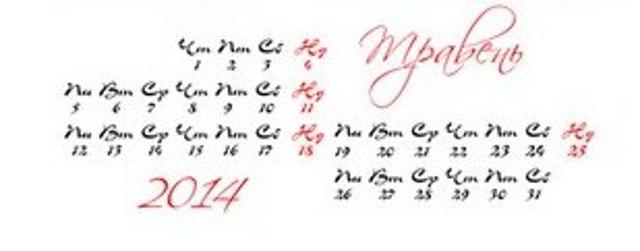 Травень
Чт Пт Сб Нд
1 2 3 4
Пн Вт Ср Чт Пт Сб Нд
5 6 7 8 9 10 11
Пн Вт Ср Чт Пт Сб Нд
12 13 14 15 16 17 18
Пн Вт Ср Чт Пт Сб Нд
19 20 21 22 23 24 25
Пн Вт Ср Чт Пт Сб
26 27 28 29 30 31
2014